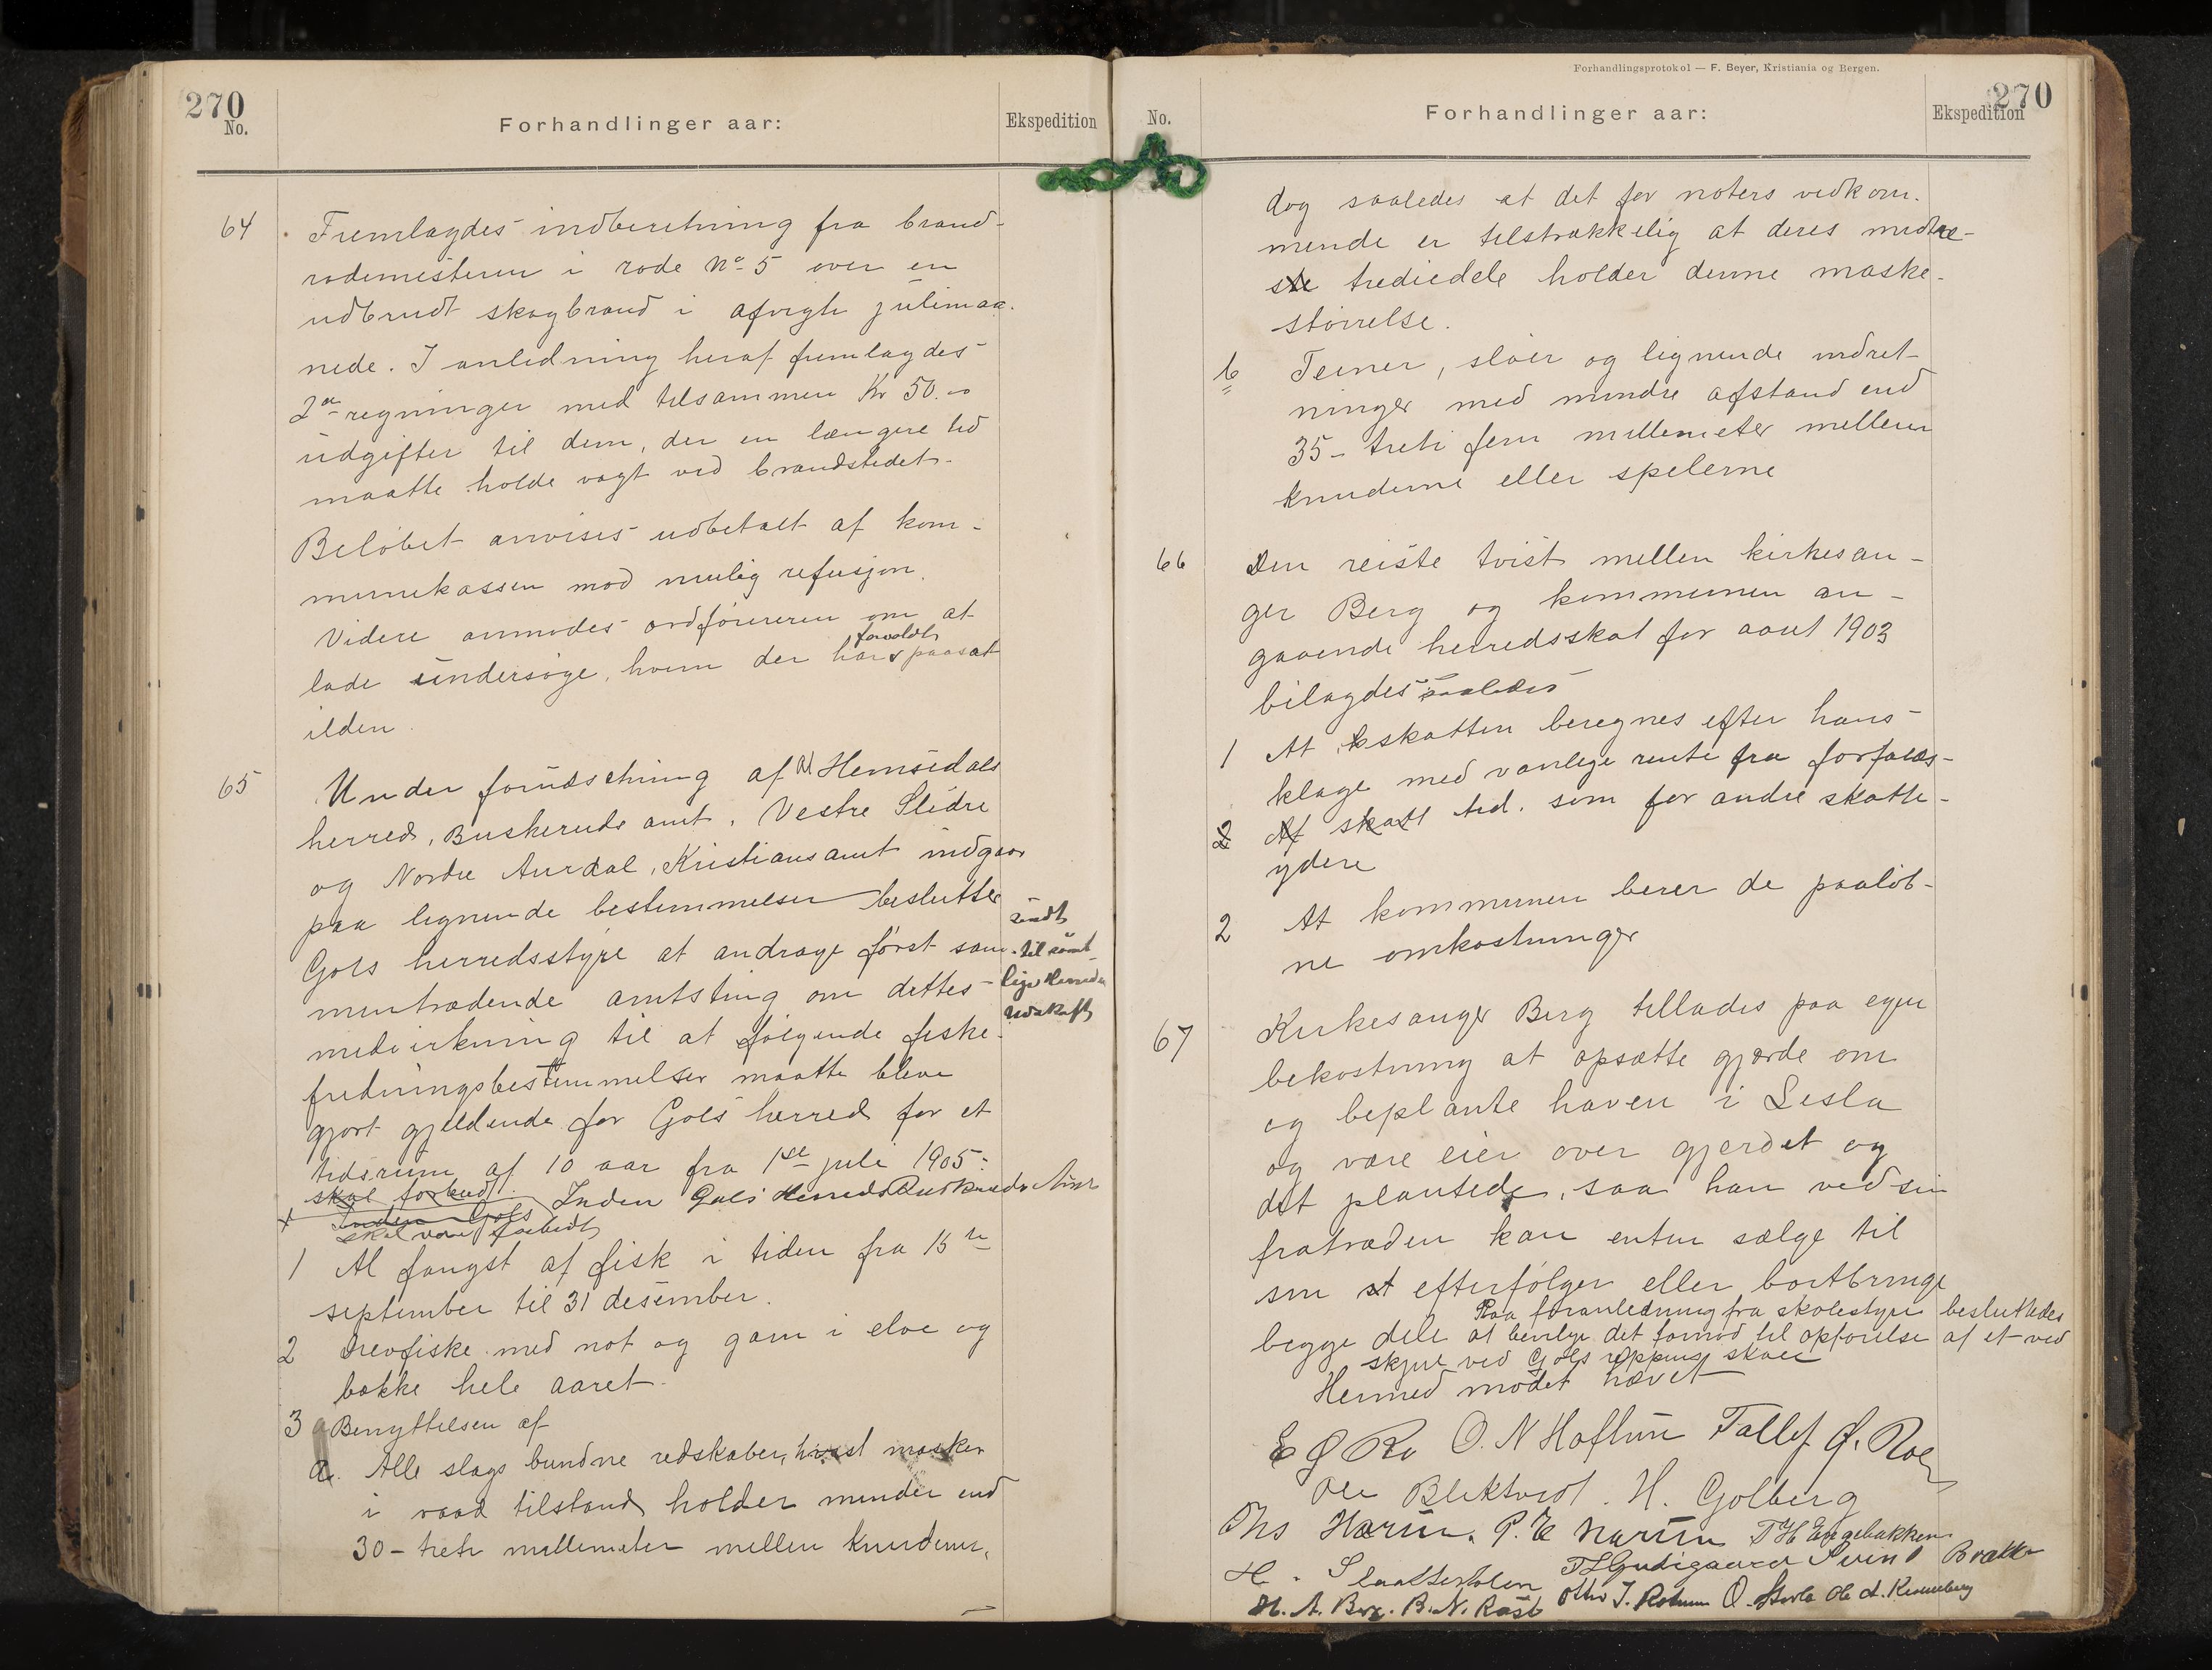 270
No.
Forhandlinger aar:
Ekspedition
64
Fremlagdes indberetning fra brand-
rodemesteren i rode No 5 over en
udbrudt skogbrand i afvigte julimaa-
nede. I anledning heraf fremlagdes
2de regninger med tilsammen Kr 50.00
udgifter til dem, der en længere tid
maatte holde vagt ved brandstedet.
Beløbet anvises udbetalt af kom-
munekassen mod mulig refusjon.
Videre anmodes ordføreren om at
forvoldt
lade undersøge, hvem der har paasat
ilden.
65
Under forudsetning af at Hemsedals
herred, Buskeruds amt, Vestre Slidre
og Nordre Aurdal, Kristians amt indgaar
paa lignende bestemmelser beslutter
Gols herredsstyre at andrage først sam-
mentrædende amtsting om dettes
medvirkning til at følgende fiske-
fredningsbestemmelser maatte bleve
gjort gjeldende for Gols herred for et
tidsrum af 10 aar fra 1ste juli 1905:
sendt
til sämt-
lige Herreder
Udskrift
skal forbud Inden Gols Herred Buskeruds Amt
x Inden Gols
skal være forbudt
1 Al fangst af fisk i tiden fra 15de
september til 31 desember.
2 Drevfiske med not og garn i elve og
bække hele aaret.
3 Benyttelsen af
a. Alle slags bundne redskaber, hvist masker
i vaad tilstand holder minder end
30 - treti millemeter mellem knuderne,
Forhandlingsprotokol — F. Beyer, Kristiania og Bergen.
270
No.
Forhandlinger aar:
Ekspedition
dog saaledes at det for noters vedkom-
mende er tilstrækkelig at deres midtre-
ste trediedele holder denne maske-
størrelse.
b Teiner, sløer og lignende indret-
ninger med mindre afstand end
35 - treti fem millemeter mellem
knuderne eller spelerne
66
Den reiste tvist mellem kirkesan-
ger Berg og kommunen an-
gaaende herredsskat for aaret 1903
bilagdes saaledes
1 At skatten beregnes efter hans
klage med vanlige rente fra forfalds-
2 Af skatt tid. som for andre skatte-
ydere
2 At kommunen berer de paaløb-
ne omkostninger
67
Kirkesanger Berg tillades paa egen
bekostning at opsætte gjærde om
og beplante haven i Lesla
og være eier over gjerdet og
det plantede, saa han ved sin
fratræden kan enten sælge til
sin efterfølger eller bortbringe
begge dele
Paa foranledning fra skolestyre besluttedes
at bevilge det fornød. til opførelse af et ved
skjul ved Gols oppens skole
Hermed mødet hævet
E O Ro O. N Hoftun Tollef Ø. Roe
Ole Bliktvedt. H. Golberg
Ths Harun. P. E Narum T H Engebakken
H. Slaattertolen T L Gudigaard Svind Brække
H. A. Berg. B. N. Rust Otto J. Rotnum O. Storla Ole A. Kronneberg